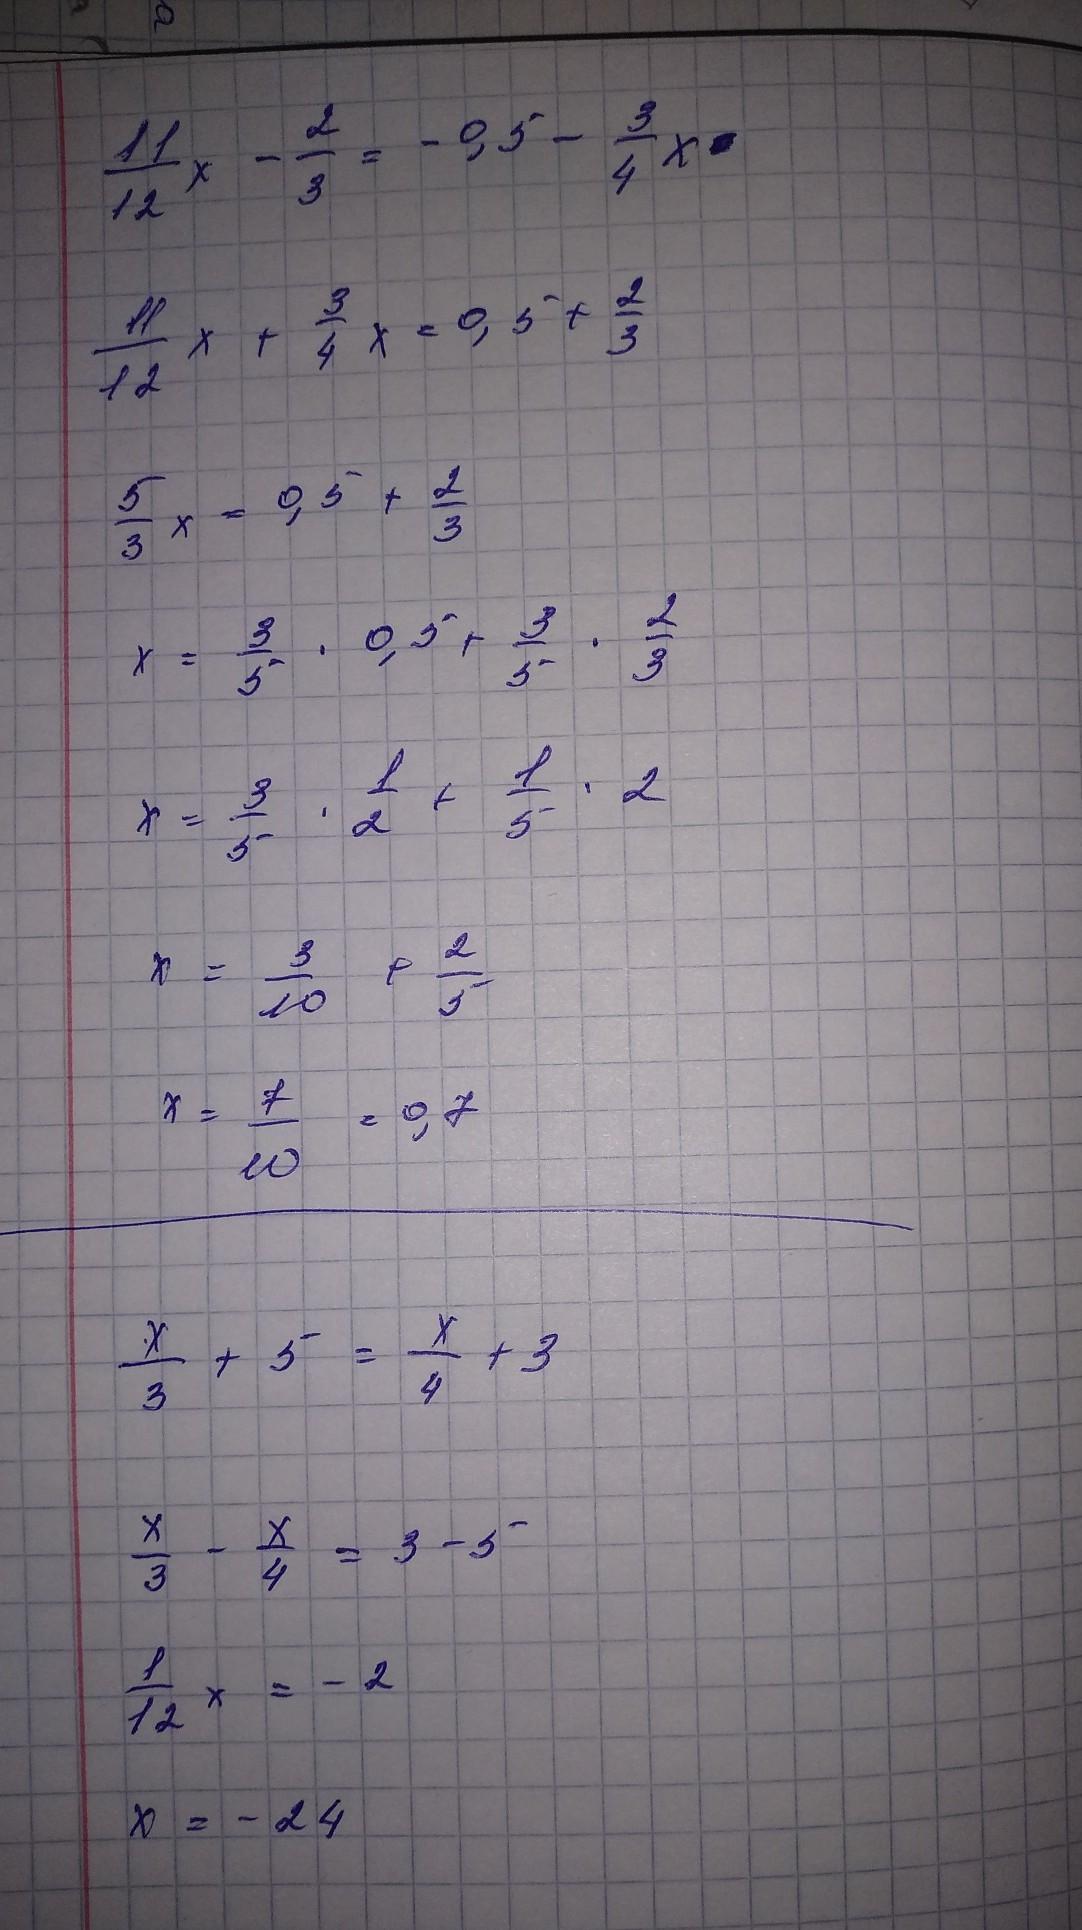 11/12 x - 2/3 = - 0,5 - 3/4 x
11/12 x + 3/4 x = 0,5 + 2/3
5/3 x = 0,5 + 2/3
x = 3/5 · 0,5 + 3/5 · 2/3
x = 3/5 · 1/2 + 1/5 · 2
x = 3/10 + 2/5
x = 7/10 = 0,7
x/3 + 5 = x/4 + 3
x/3 - x/4 = 3 - 5
1/12 x = - 2
x = - 24